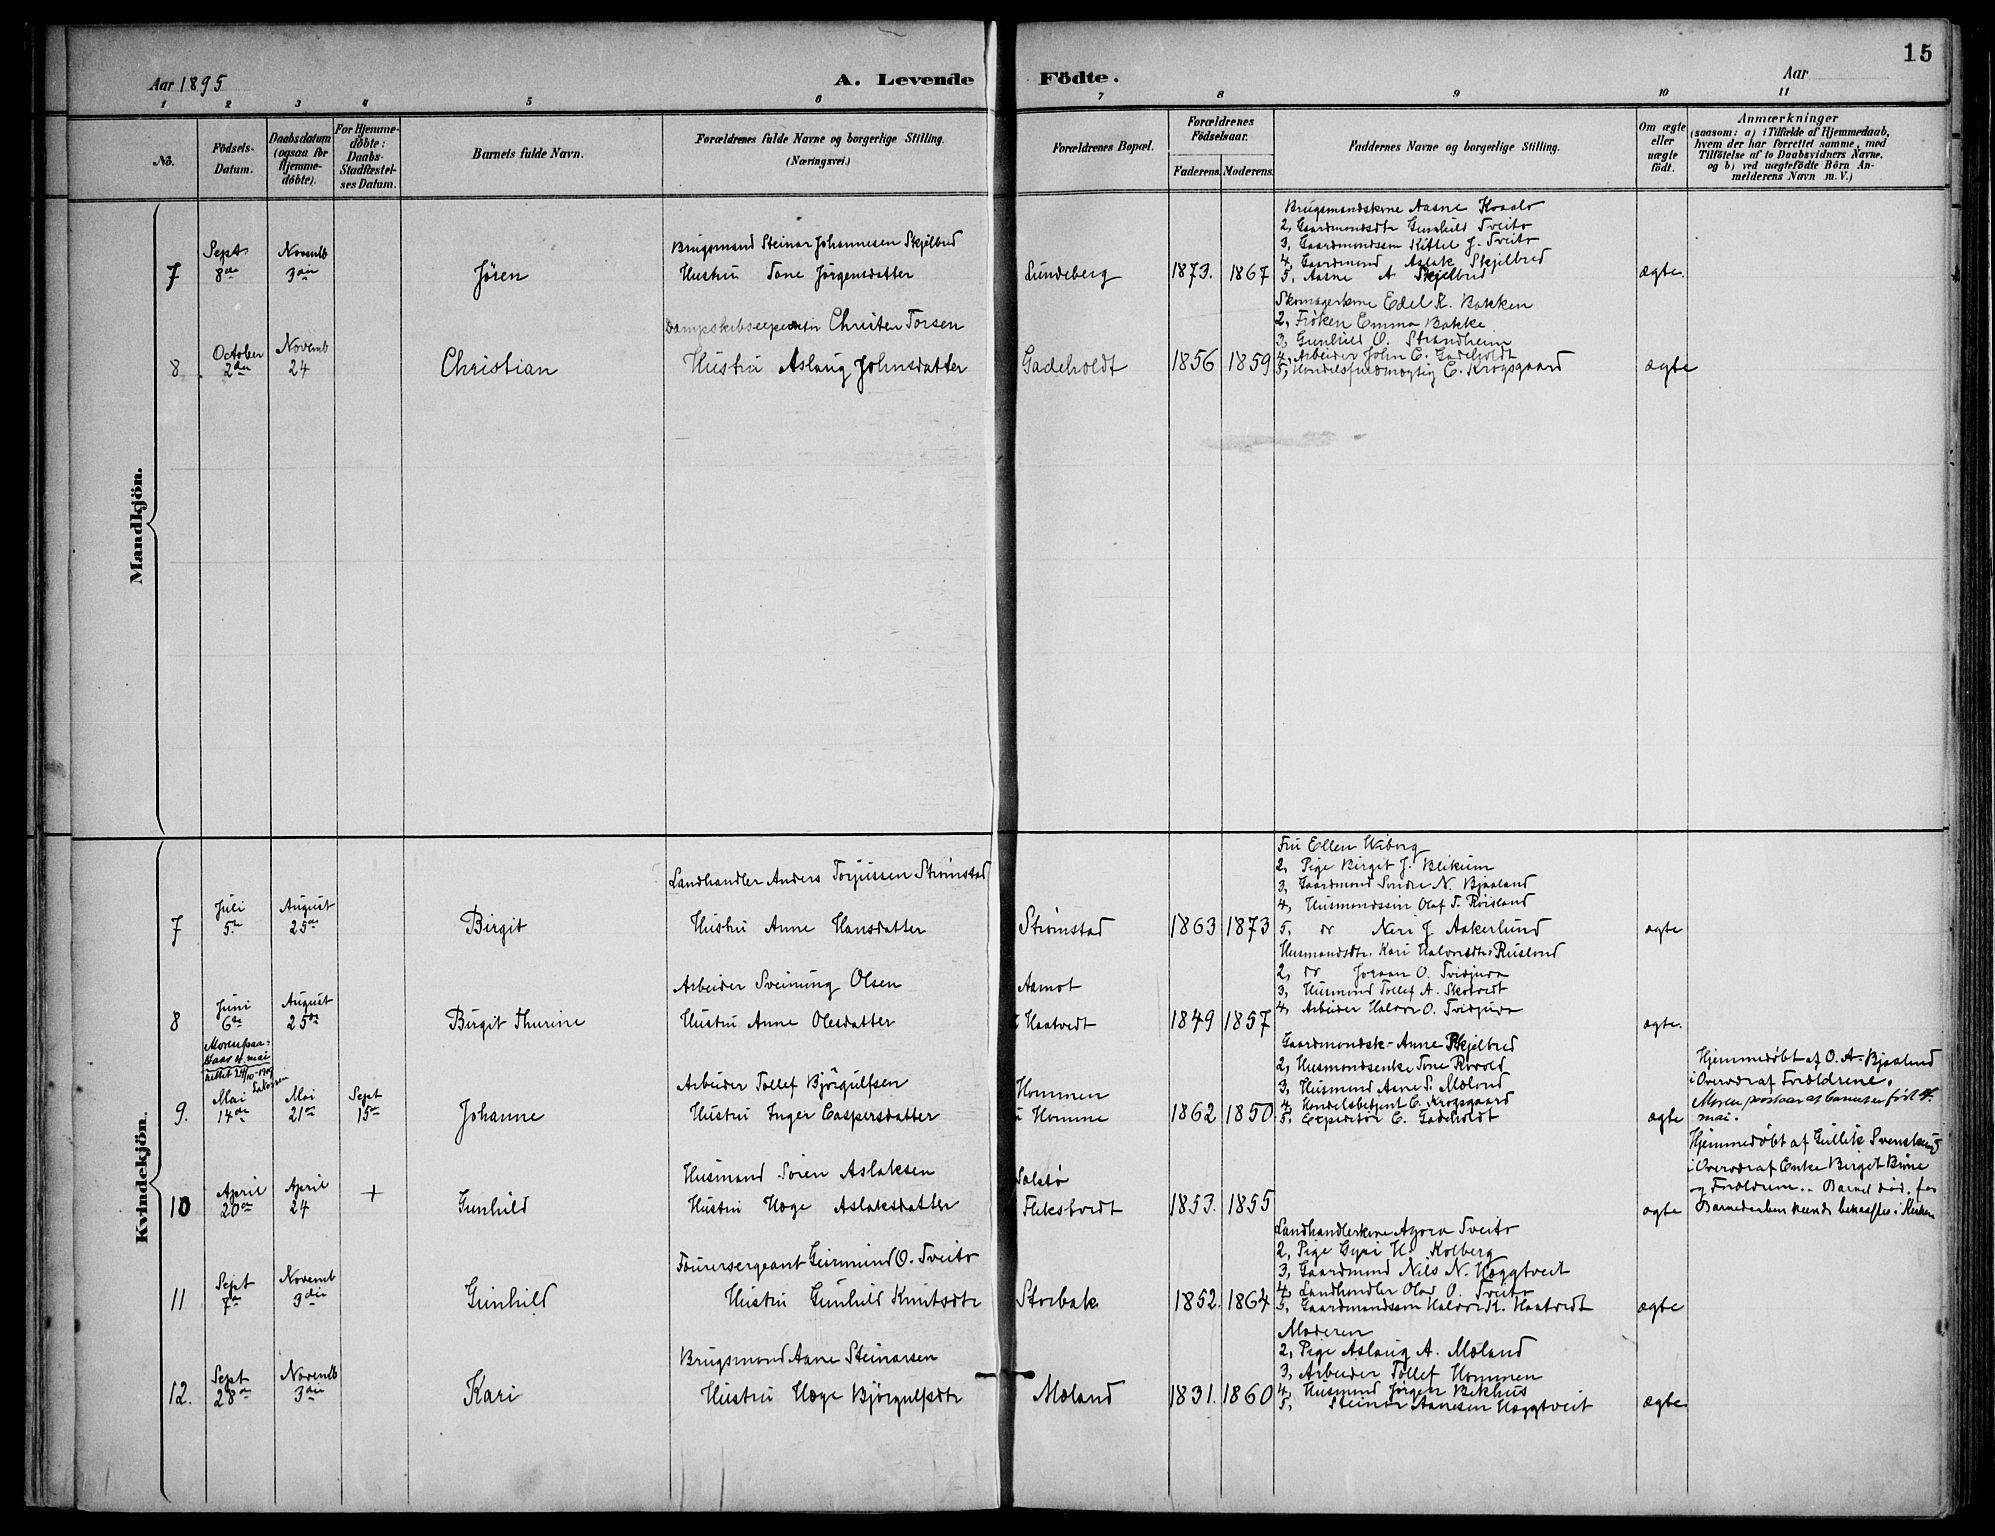 15
Aar 1895
A. Levende Födte.
Aar
1 2 3 4 5 6 7 8 9 10 11
No.
Födsels-Datum.
Daabsdatum (ogsaa for Hjemme-döbte).
For Hjemme-döbte: Daabs-Stadfæstel-ses Datum.
Barnets fulde Navn.
Forældrenes fulde Navne og borgerlige Stilling.
(Næringsvei.)
Forældrenes Bopæl.
Forældrenes Födselsaar.
Faderens. Moderens.
Faddernes Navne og borgerlige Stilling.
Om ægte eller uægte födt.
Anmærkninger
(saasom: a) i Tilfælde af Hjemmedaab,
hvem der har forrettet samme, med
Tilföielse af to Daabsvidners Navne,
og b) ved uægtefödte Börn An-
melderens Navn m. V.)
Mandkjön.
7
Sept 8de
Novemb 3die
Jören
Brugsmand Steinar Johannesen Skjelbred
Hustru Tone Jörgensdatter
Lundeberg
1873. 1867
Brugsmandskone Aasne
2, Gaardmandsdtr Gunhild Tveito
3, Gaardmandssøn Kittel J. Tveito
4, Gaardmand Aslak Skjelbred
5, Aasne A Skjelbred
ægte.
8
October 2den
Novemb 24
Christian
Dampskibsexpeditør Christen Torsen
Hustru Aslaug Johnsdatter
Gadeholdt
1856 1859
Skomagerkone Edel K. Bakken
2, Frøken Emma Bakke
3, Gunhild O. Strandheim
4, Arbeider John C. Gadeholdt
5, Handelsfuldmægtig C. Krogsgaard
ægte
Kvindekjön.
7
Juli 5te
August 25de
Birgit
Landhandler Anders Torjussen Strömstad
Hustru Anne Hansdatter
Strömstad
1863 1873
Fru Ellen Wiborg
2, Pige Birgit J. Blikum
3, Gaardmand Sondre N. Bjaaland
4, Husmandssøn Olaf T. Røisland
5, do Neri J. Aakerlund
ægte
8
Juni 6te
August 25de
Birgit Thurine
Arbeider Sveinung Olsen
Hustru Anne Olesdatter
Aamot
u Haatvedt
1849 1857
Husmandsdtr. Kari Halvorsdtr. Rusland
2, do Joraan O. Tvidjuva
3, Husmand Tollef A. Skotvedt
4, Arbeider Halvor O. Tvidjuva
ægte.
9.
Moren paa-
staar 4. mai
rettet 24/10-1919
Mai 14de
Mai 21de
Sept 15de
Johanne
Arbeider Tollef Björgulfsen
Hustru Inger Caspersdatter
Hommen
u Homme
1862 1850
Gaardmandsk. Anne Skjelbred
2, Husmandsenke Tone
3, Husmand Aasne S. Mæland
4, Handelsbetjent C. Krogsgaard
5, Expeditør C. Gadeholdt
ægte
Hjemmedøbt af O. A. Bjaaland
i Overvær af Forældrene.
Moren paastaar at barnet er født 4.
mai.
10
April 20de
April 24
+
Gunhild
Husmand Sören Aslaksen
Hustru Hæge Aslaksdatter
Solstø
Flekstvedt
1853. 1855
ægte
Hjemmedøbt af Gullik
i Overvær af Enke Birgit
og Forældrene. Barnet død, før
Barnedaaben kunde bekræftes i Kirken
11
Sept 7de
Novemb 3die
Gunhild
Fourersergeant Geirmund O. Tveito
Hustru Gunhild Knutsdtr
Storbak
1852. 1864
Landhandlerkone Agora Tveito
2, Pige Gyri H. Kolberg
3, Gaardmand Nils N. Hæggtveit
4, Landhandler Olav O. Tveito
5, Gaardmandssøn Halvor K. Haatvedt
ægte
12.
Sept 28de
Novemb 3die
Kari
Brugsmand Aane Steinarsen
Hustru Hæge Björgulfsdtr
Mæland
1831. 1860
Moderen
2, Pige Aslaug A. Mæland
3, Arbeider Tollef Hommen
4, Husmand Jørgen Bekhus
5, Steinar Aanesen Hæggtveit
ægte